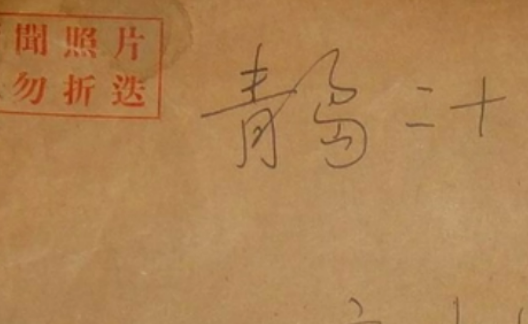 聞照片
勿折迭
青岛二十